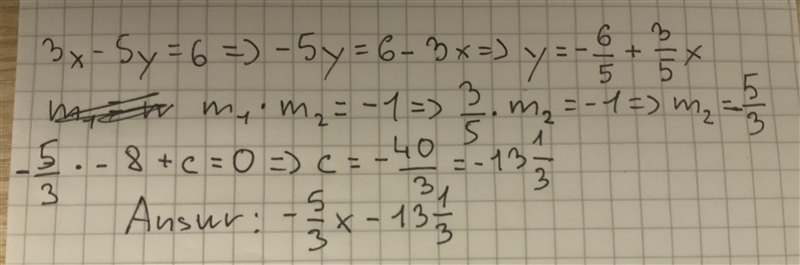 3x - 5y = 6 => -5y = 6 - 3x => y = -6/5 + 3/5 x
m₁ · m₂ = -1 => 3/5 · m₂ = -1 => m₂ = -5/3
-5/3 · -8 + c = 0 => c = -40/3 = -13 1/3
Answr: -5/3 x - 13 1/3